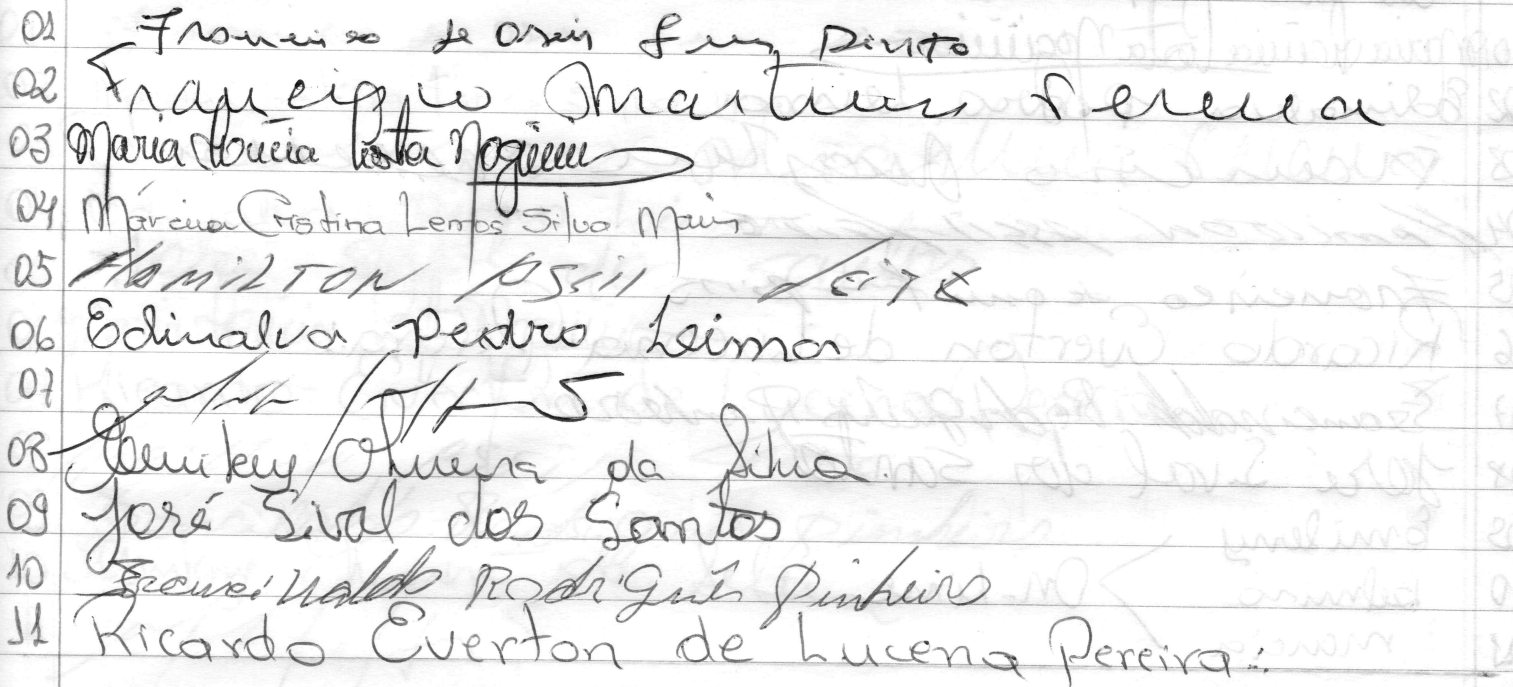 01 Francisco de Assis Pinto
02 Francisco Martins Pereira
03 Maria Lúcia Costa
04 Márcia Cristina Lemos Silva
05 HAMILTON ASSIS LEITE
06 Edinalva Pedro Leima
07
08 Oliveira da Silva
09 José Sival dos Santos
10 Francinaldo Rodriguês Pinheiro
11 Ricardo Everton de Lucena Pereira.